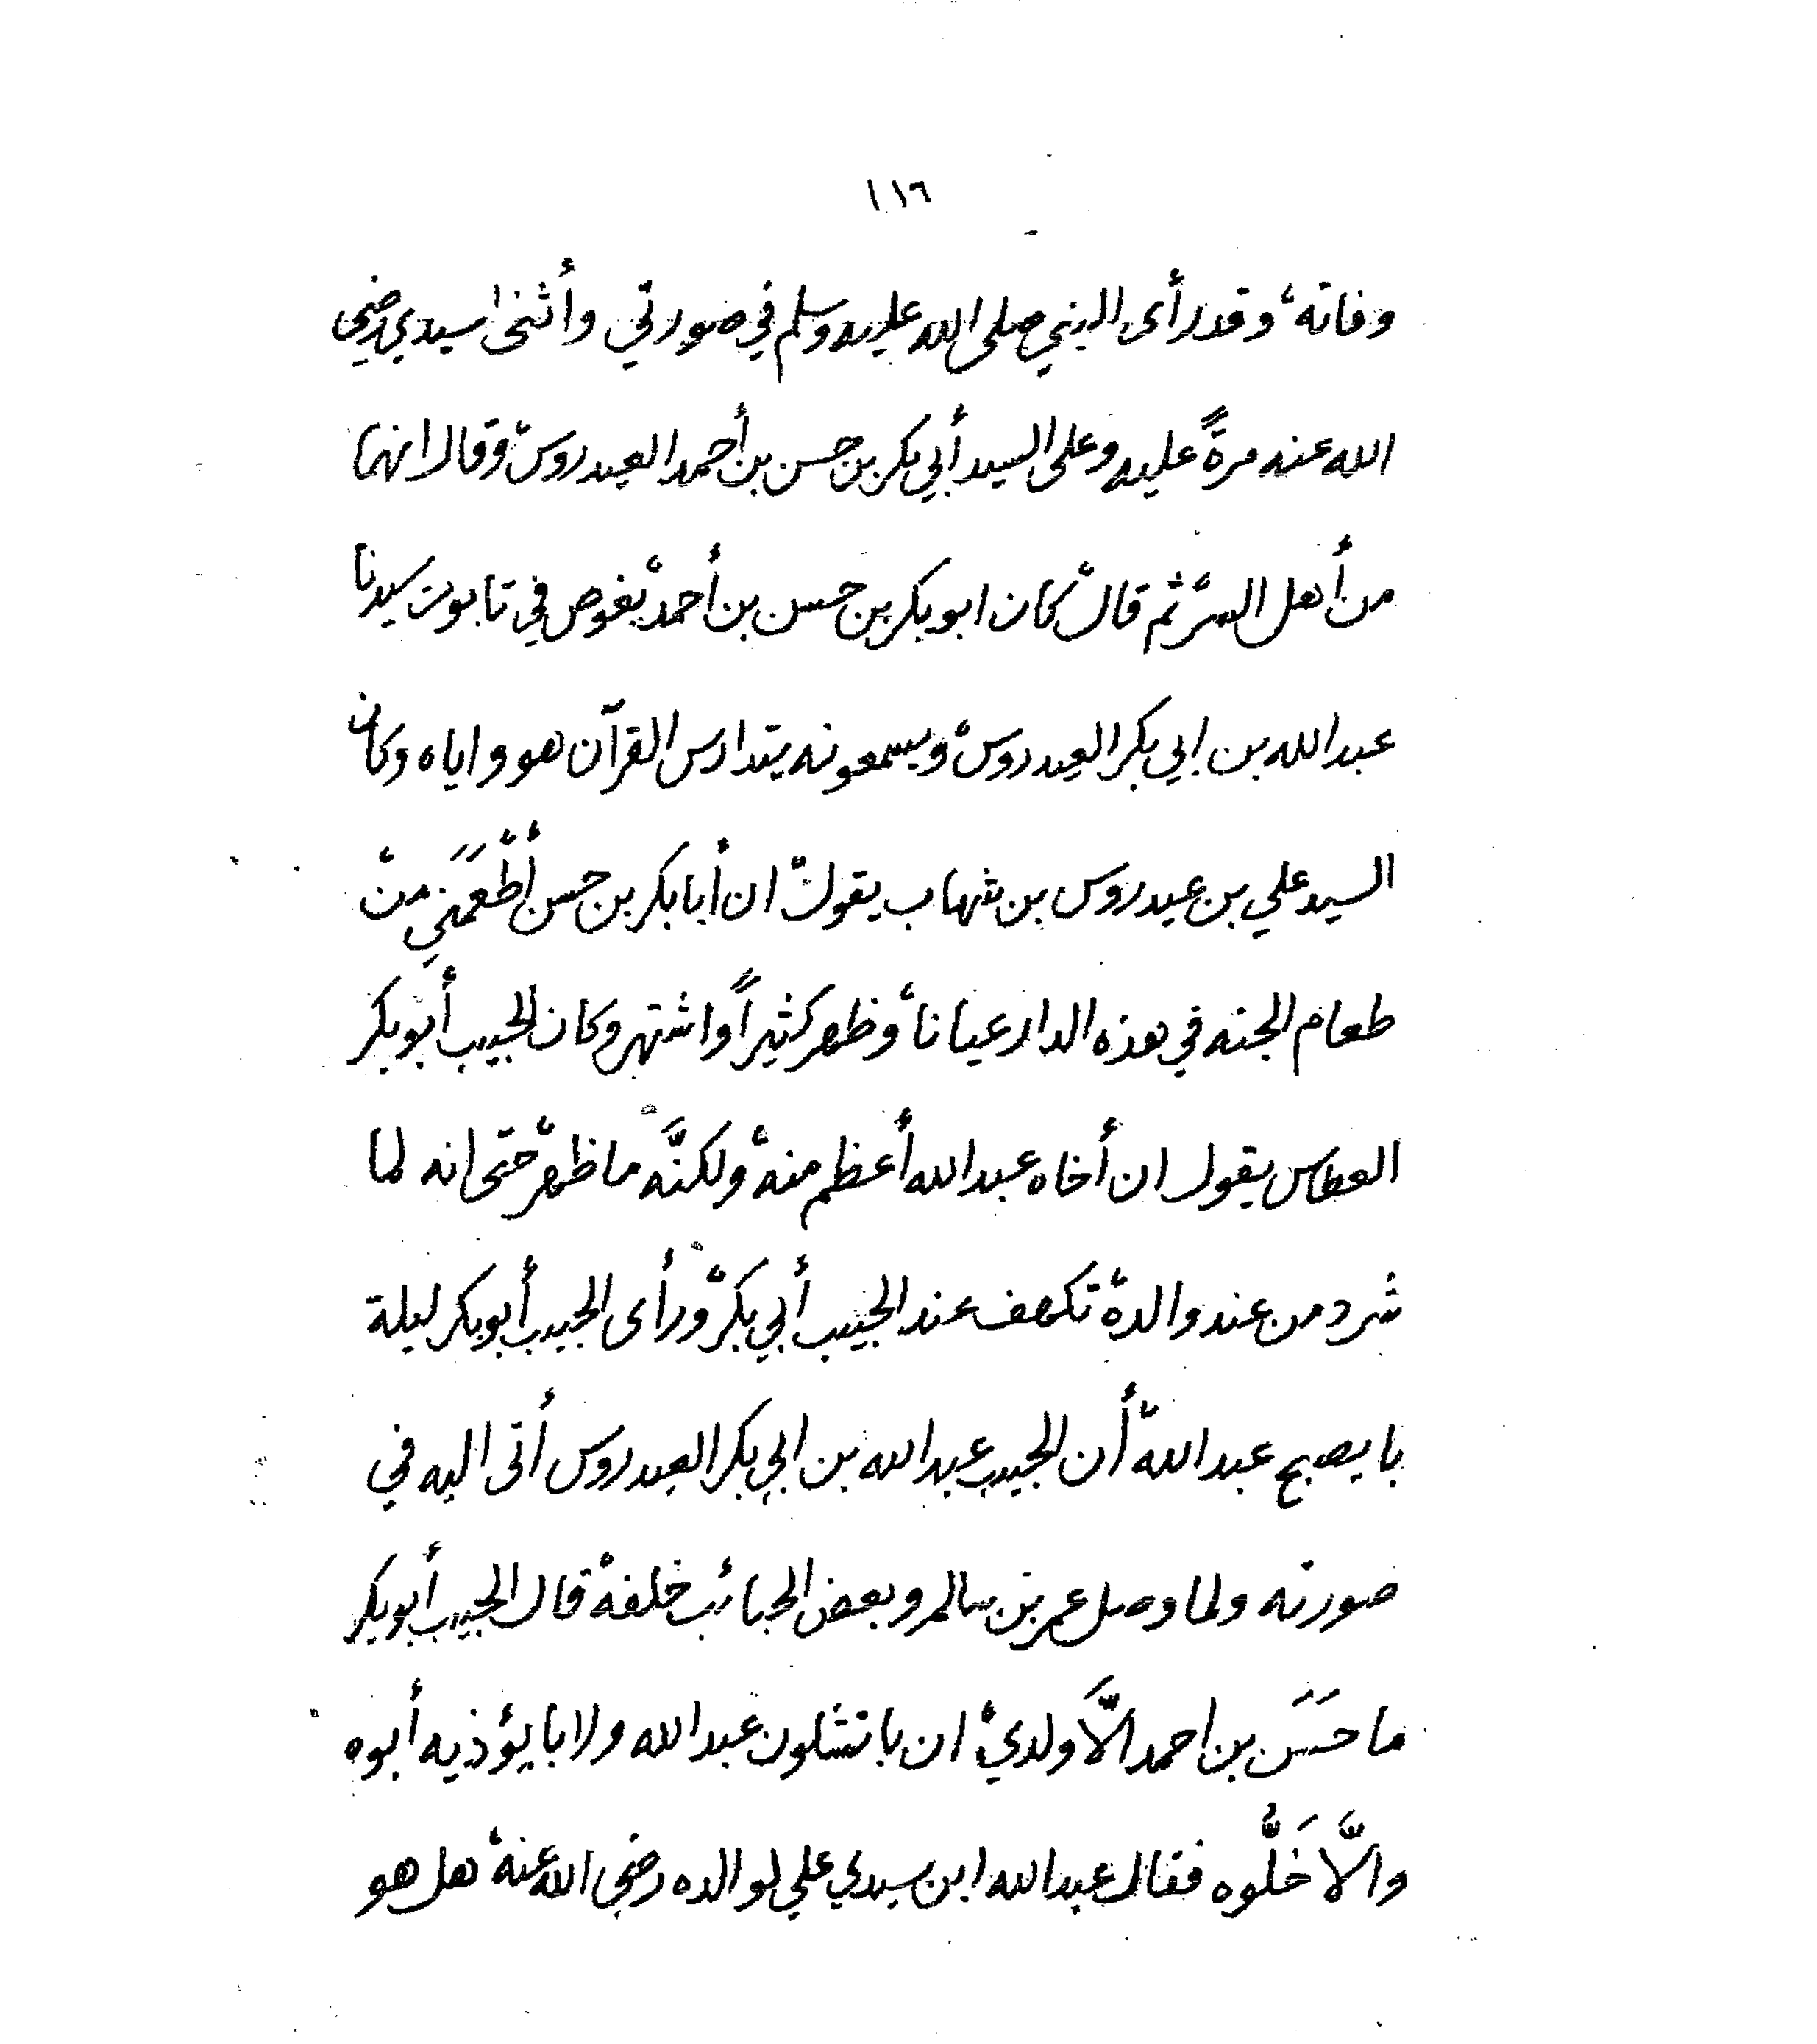 ١١٦
وفاته، وقد رأى النبي صلى الله عليه وسلم في صورتي وأثنى سيدي رضي
الله عنه مرةً عليه وعلى السيد أبي بكر بن حسن بن أحمد العيدروس، وقال انهما
من أهل السر، ثم قال، كان ابو بكر بن حسن بن أحمد، يغوص في تابوت سيدنا
عبدالله بن ابي بكر العيدروس، ويسمعونه يتدارس القرآن هو واياه وكان
السيد علي بن عيدروس بن شهاب يقول، ان أبا بكر بن حسن أطْعَمَني من
طعام الجنه في هذه الدار عيانا، وظهر كثيراً واشتهر وكان الحبيب أبو بكر
العطاس يقول ان أخاه عبدالله أعظم منه، ولكنَّه ما ظهر، حتى انه لما
شرد من عند والده، تكهف عند الحبيب أبي بكر، ورأى الحبيب أبو بكر ليلة
با يصبح عبدالله، أن الحبيب عبدالله بن ابي بكر العيدروس أتى اليه في
صورته ولما وصل عمر بن سالم وبعض الحبائب خلفه، قال الحبيب أبو بكر
ما حَسَن بن احمد الَّا ولدي، ان با تشلون عبدالله ولا با يؤذيه أبوه
والَّا خَلُّوه فقال عبدالله ابن سيدي علي لوالده رضي الله عنه، هل هو